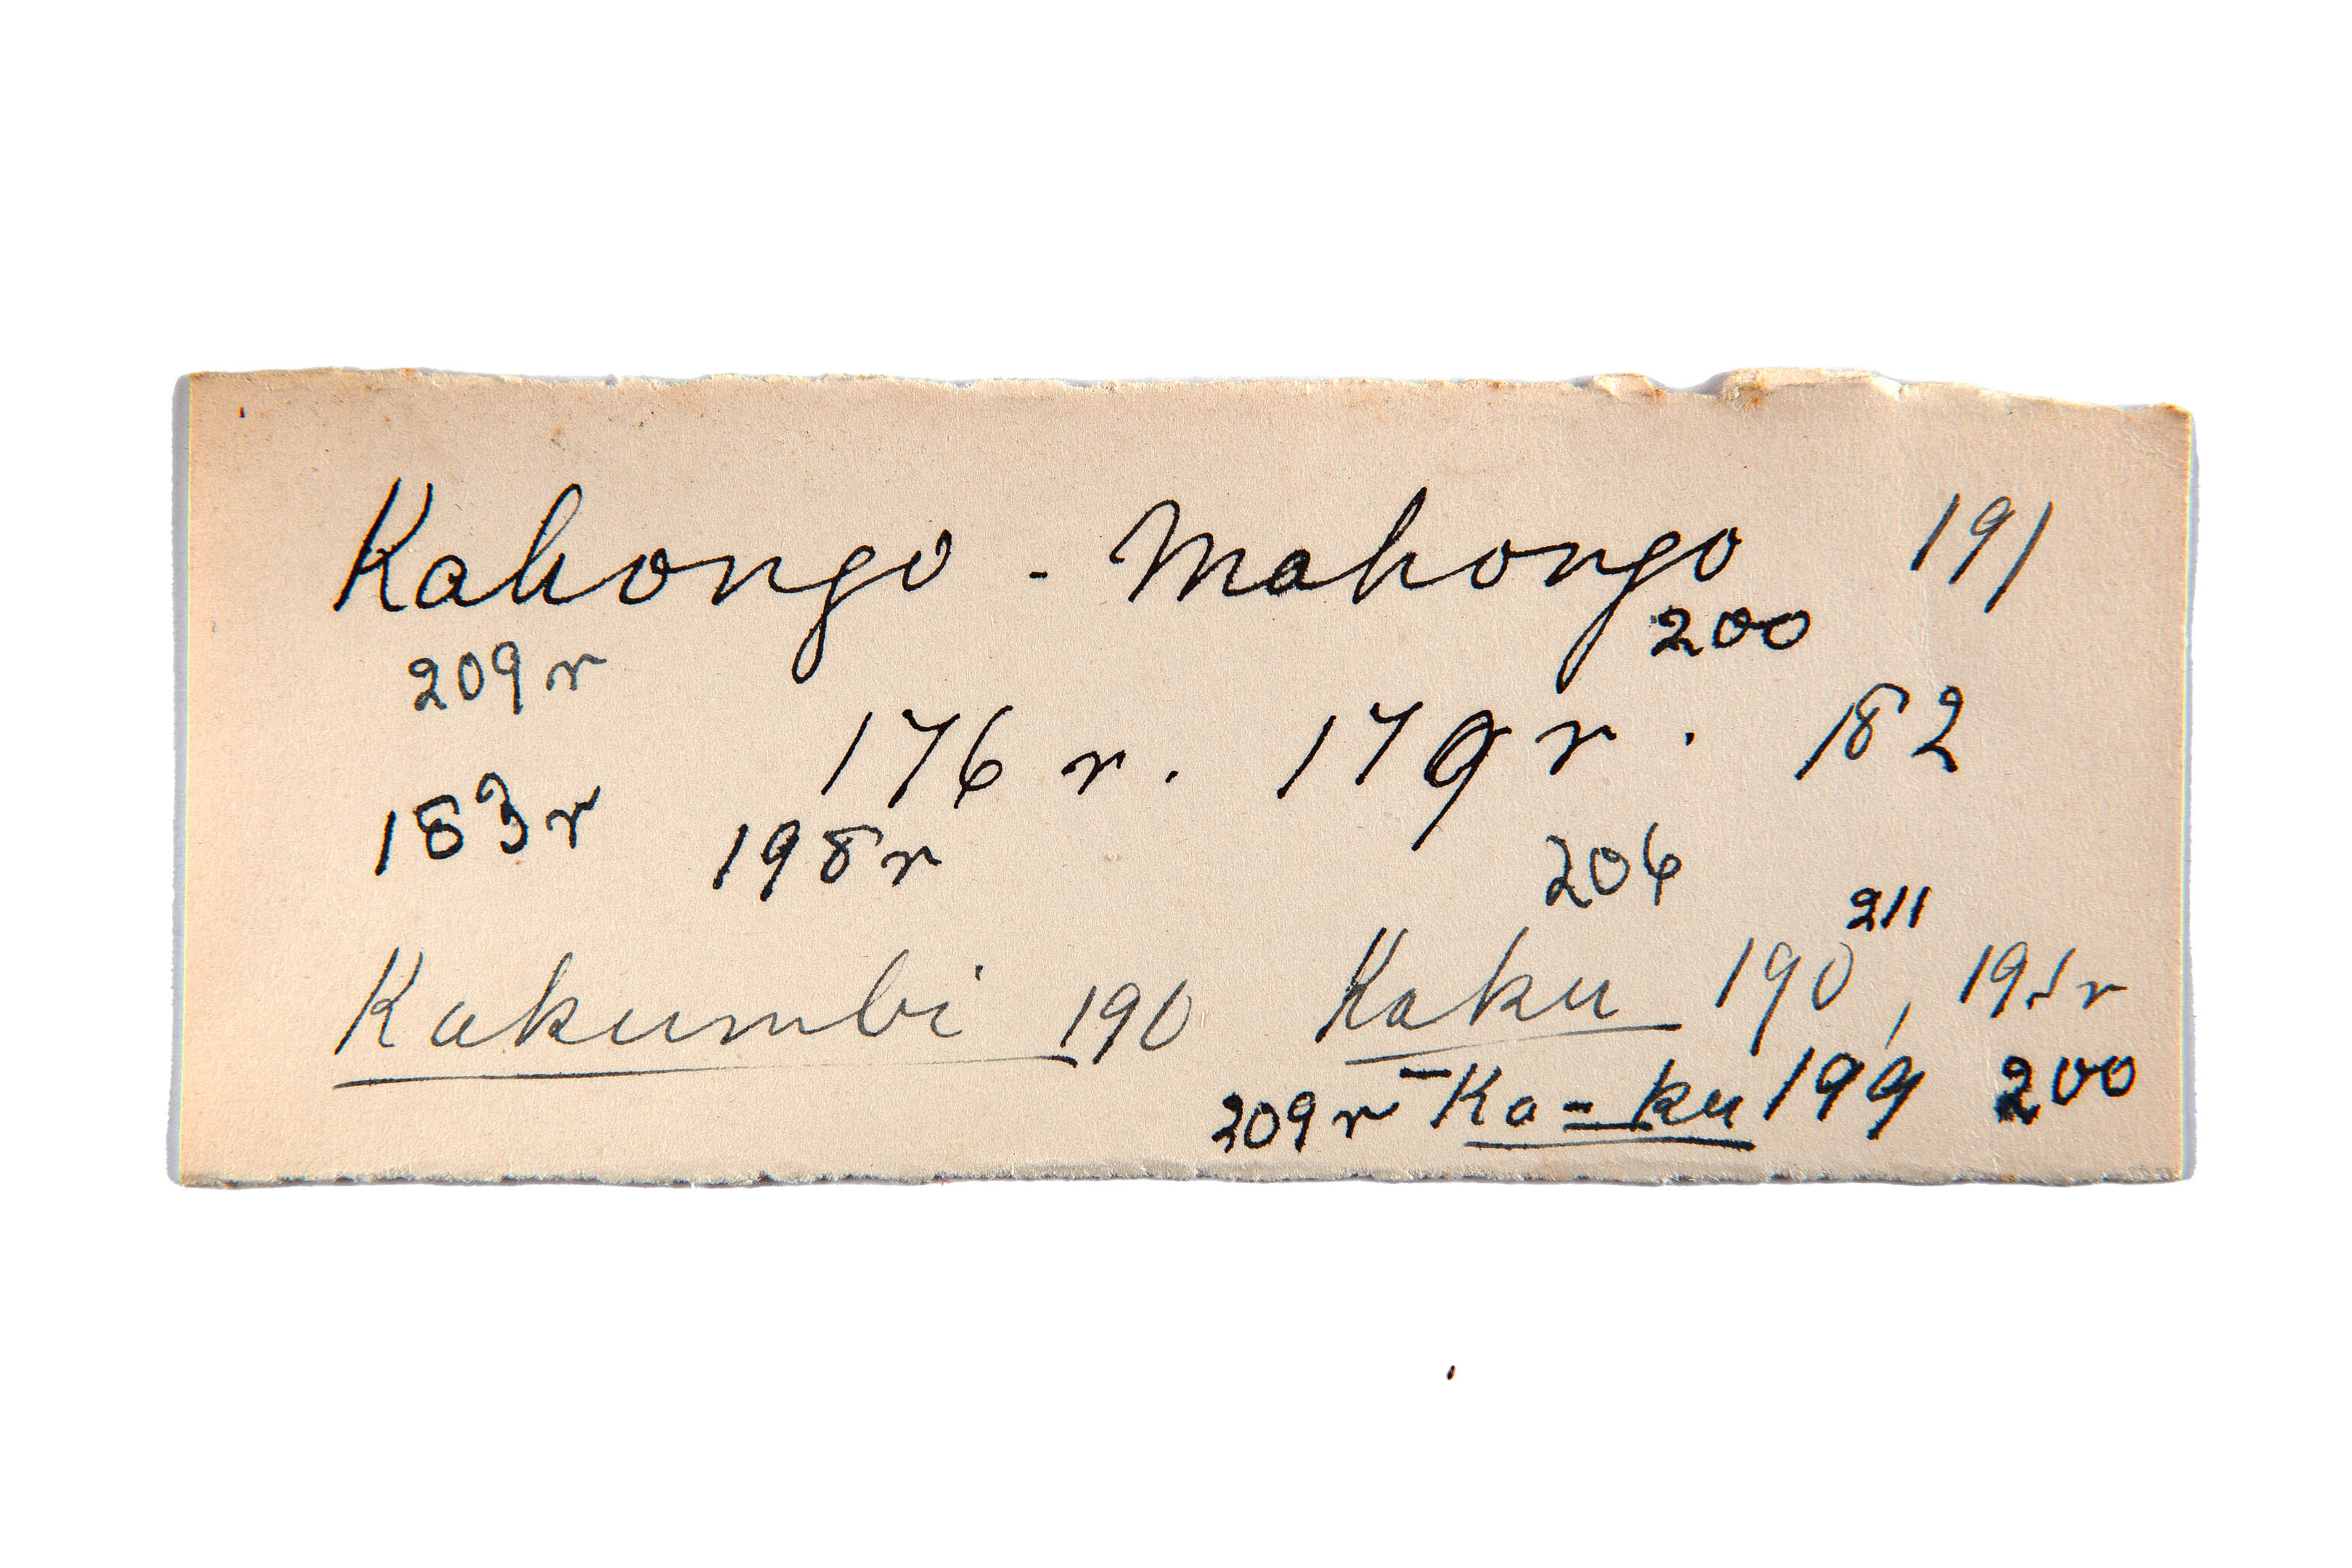 Kahongo - Mahongo 191
209 r 200
176 r. 179 r. 182
183 r 198 r 206
211
Kakumbi 190 Kaku 190, 195 r
209 r - Ka-ku 199 200